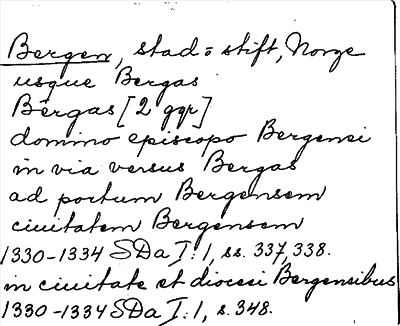 Bergen, stad o stift, Norge
usque Bergas
Bergas [2 ggr]
domino episcopo Bergensi
in via versus Bergas
ad portum Bergensem
ciuitatem Bergensem
1330-1334 SDa I:1, ss. 337,338.
in ciuitate et diocesi Bergensibus
1330-1334 SDa I:1, s. 348.